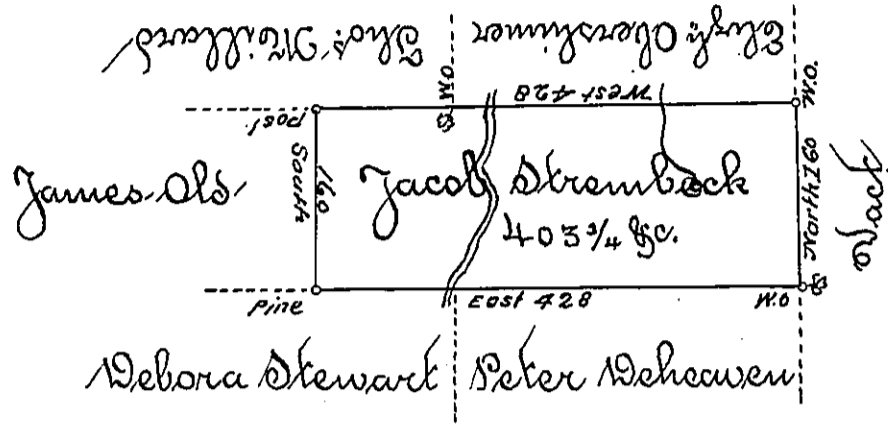 Thos. Millard
Elizh. Obershimer
W.O.
W.O.
West 428
Post
South 160
James Old
Jacob Strembeck
403 3/4 &c.
North 160
Wack
Pine
East 428
W.O
Debora Stewart
Peter Deheaven